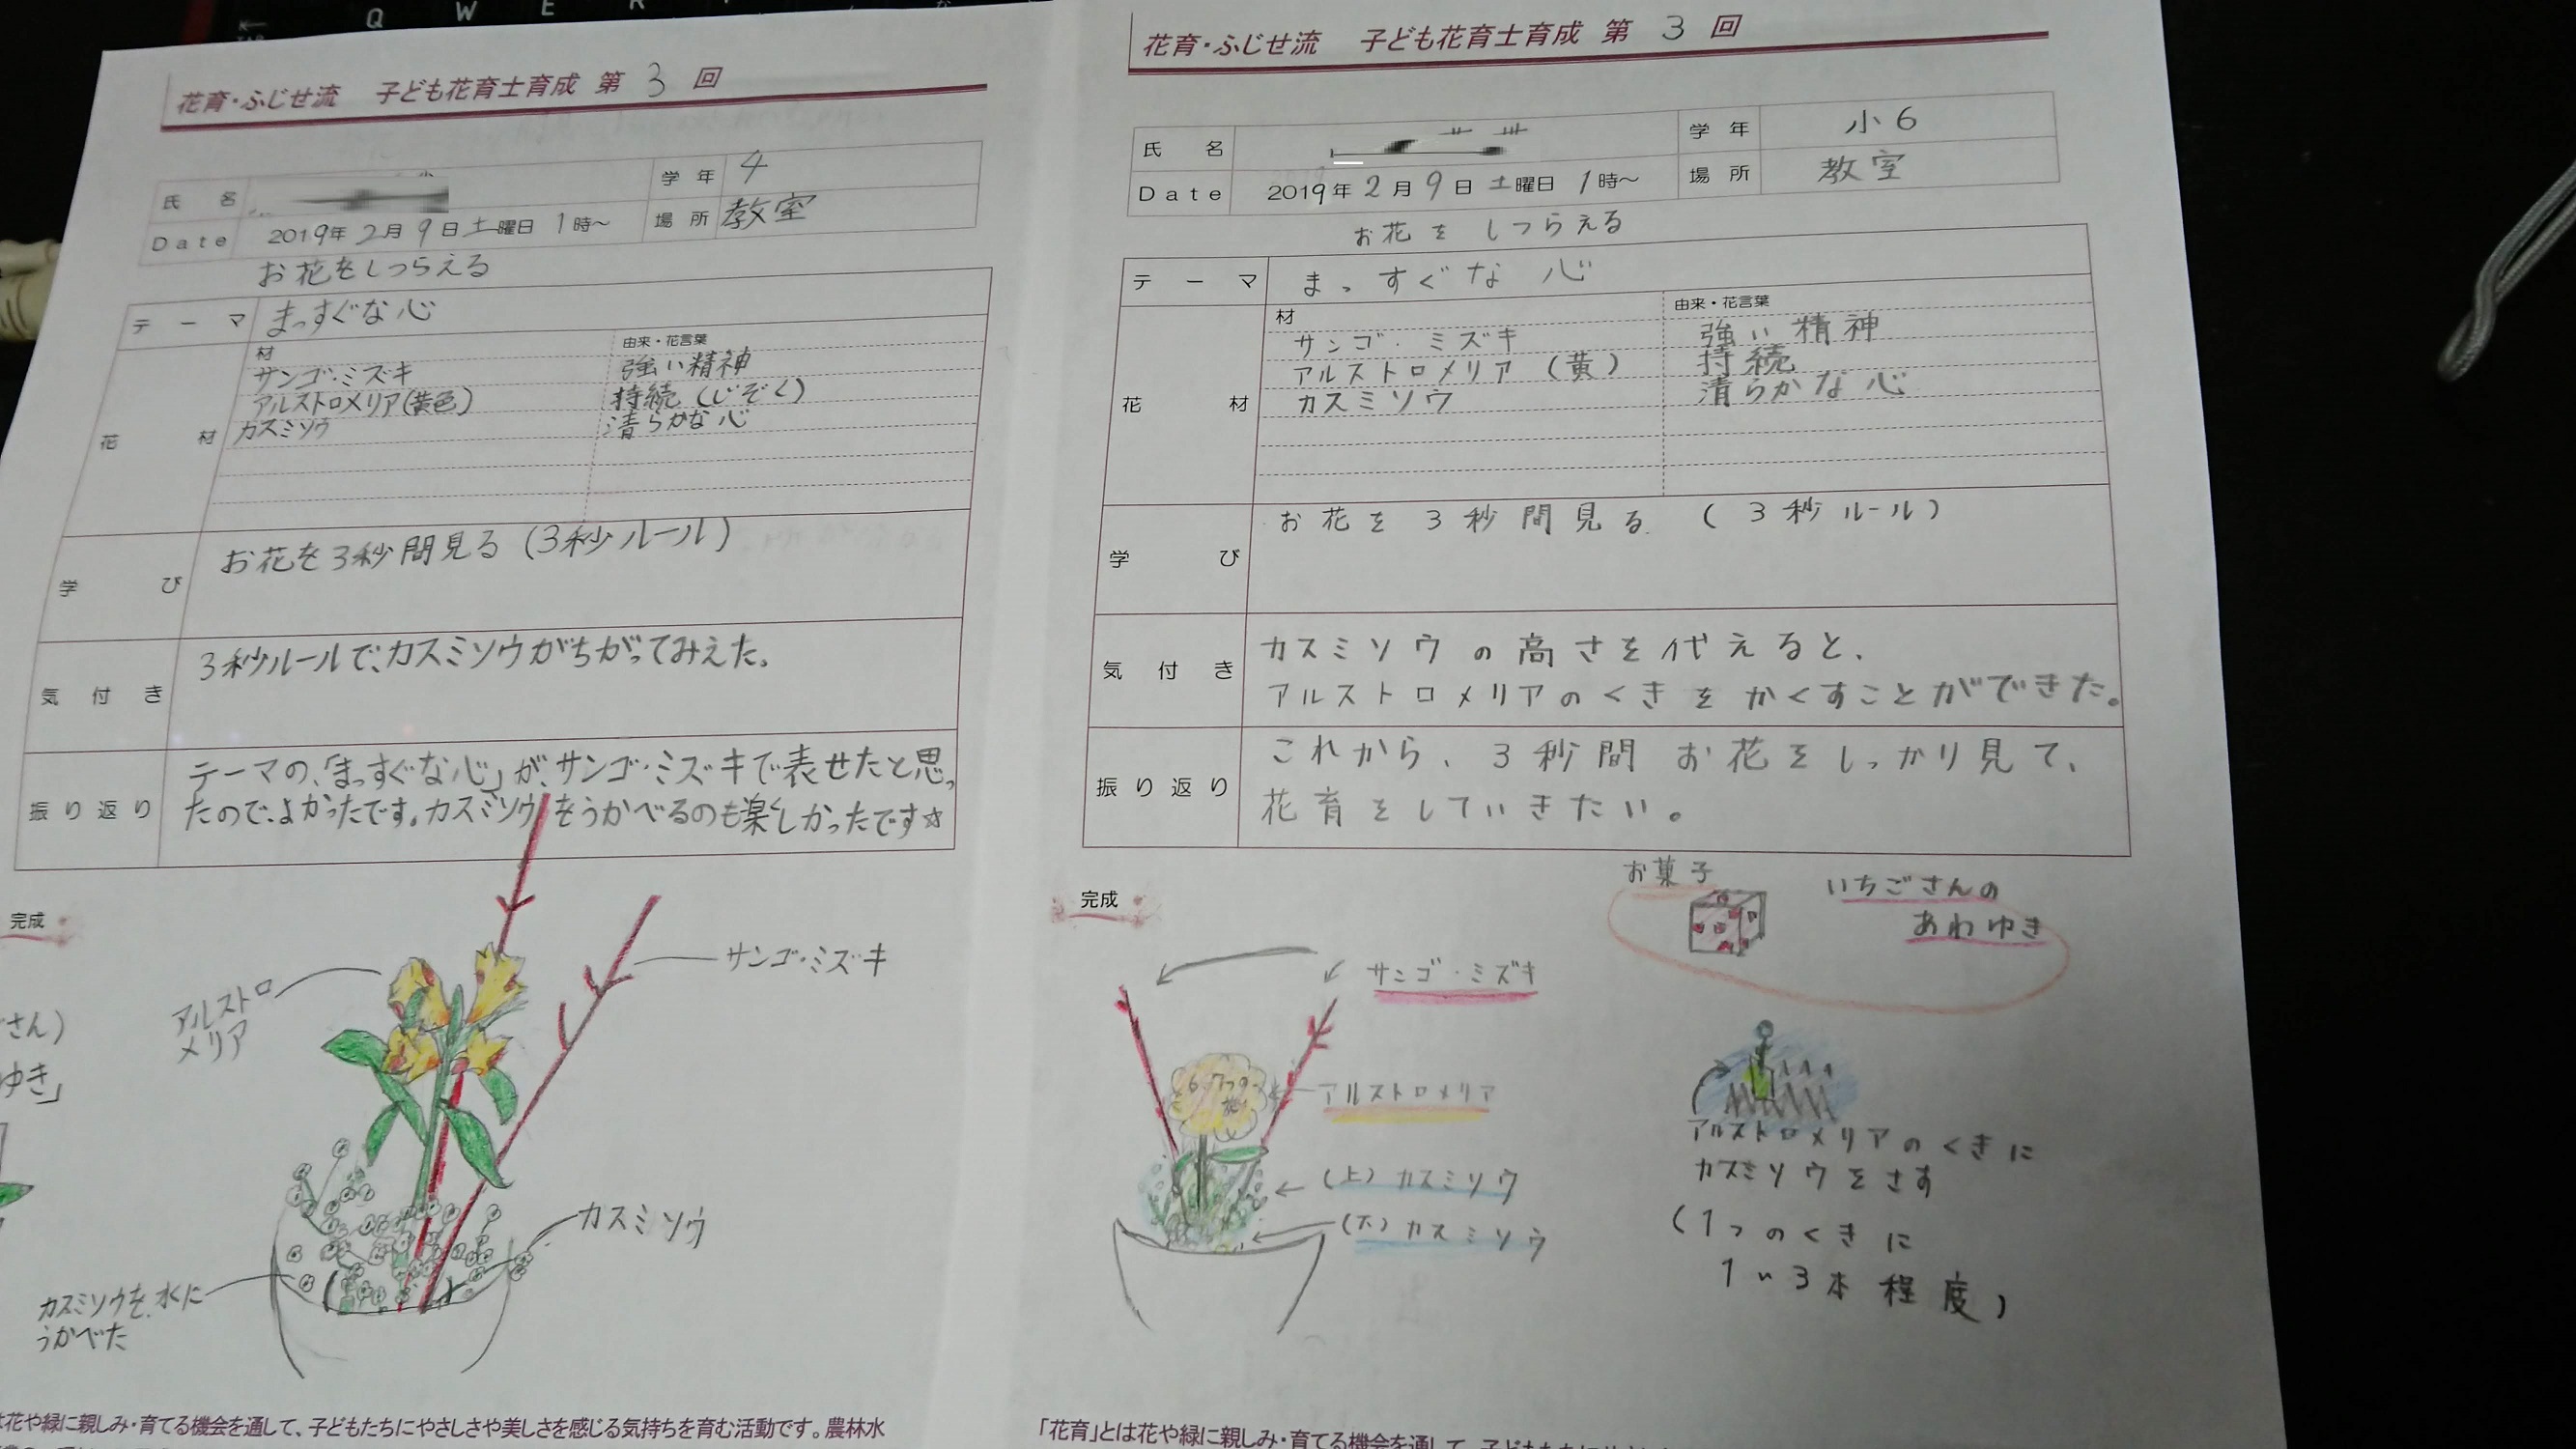 Q W E R
花育・ふじせ流 子ども花育士育成 第 3 回
氏名
学年 4
Date 2019年 2月 9日 土曜日 1時～
場所 教室
お花をしつらえる
テーマ まっすぐな心
花材
材 由来・花言葉
サンゴ・ミズキ 強い精神
アルストロメリア(黄色) 持続(じぞく)
カスミソウ 清らかな心
学び お花を3秒間見る(3秒ルール)
気付き 3秒ルールで、カスミソウがちがってみえた。
振り返り テーマの、「まっすぐな心」が、サンゴ・ミズキで表せたと思っ
たので、よかったです。カスミソウをうかべるのも楽しかったです☆
完成
さん)
ゆき」
アルストロ
メリア
サンゴ・ミズキ
カスミソウ
カスミソウを、水に
うかべた
は花や緑に親しみ・育てる機会を通して、子どもたちにやさしさや美しさを感じる気持ちを育む活動です。農林水
花育・ふじせ流 子ども花育士育成 第 3 回
氏名
学年 小6
Date 2019年 2月 9日 土曜日 1時～
場所 教室
お花をしつらえる
テーマ まっすぐな心
花材
材 由来・花言葉
サンゴ・ミズキ 強い精神
アルストロメリア(黄) 持続
カスミソウ 清らかな心
学び お花を3秒間見る (3秒ルール)
気付き カスミソウの高さを代えると、
アルストロメリアのくきをかくすことができた。
振り返り これから、3秒間お花をしっかり見て、
花育をしていきたい。
完成
お菓子
いちごさんの
あわゆき
サンゴ・ミズキ
アルストロメリア
(上)カスミソウ
(下)カスミソウ
アルストロメリアのくきに
カスミソウをさす
(1つのくきに
1〜3本程度)
「花育」とは花や緑に親しみ・育てる機会を通して、子どもたちに